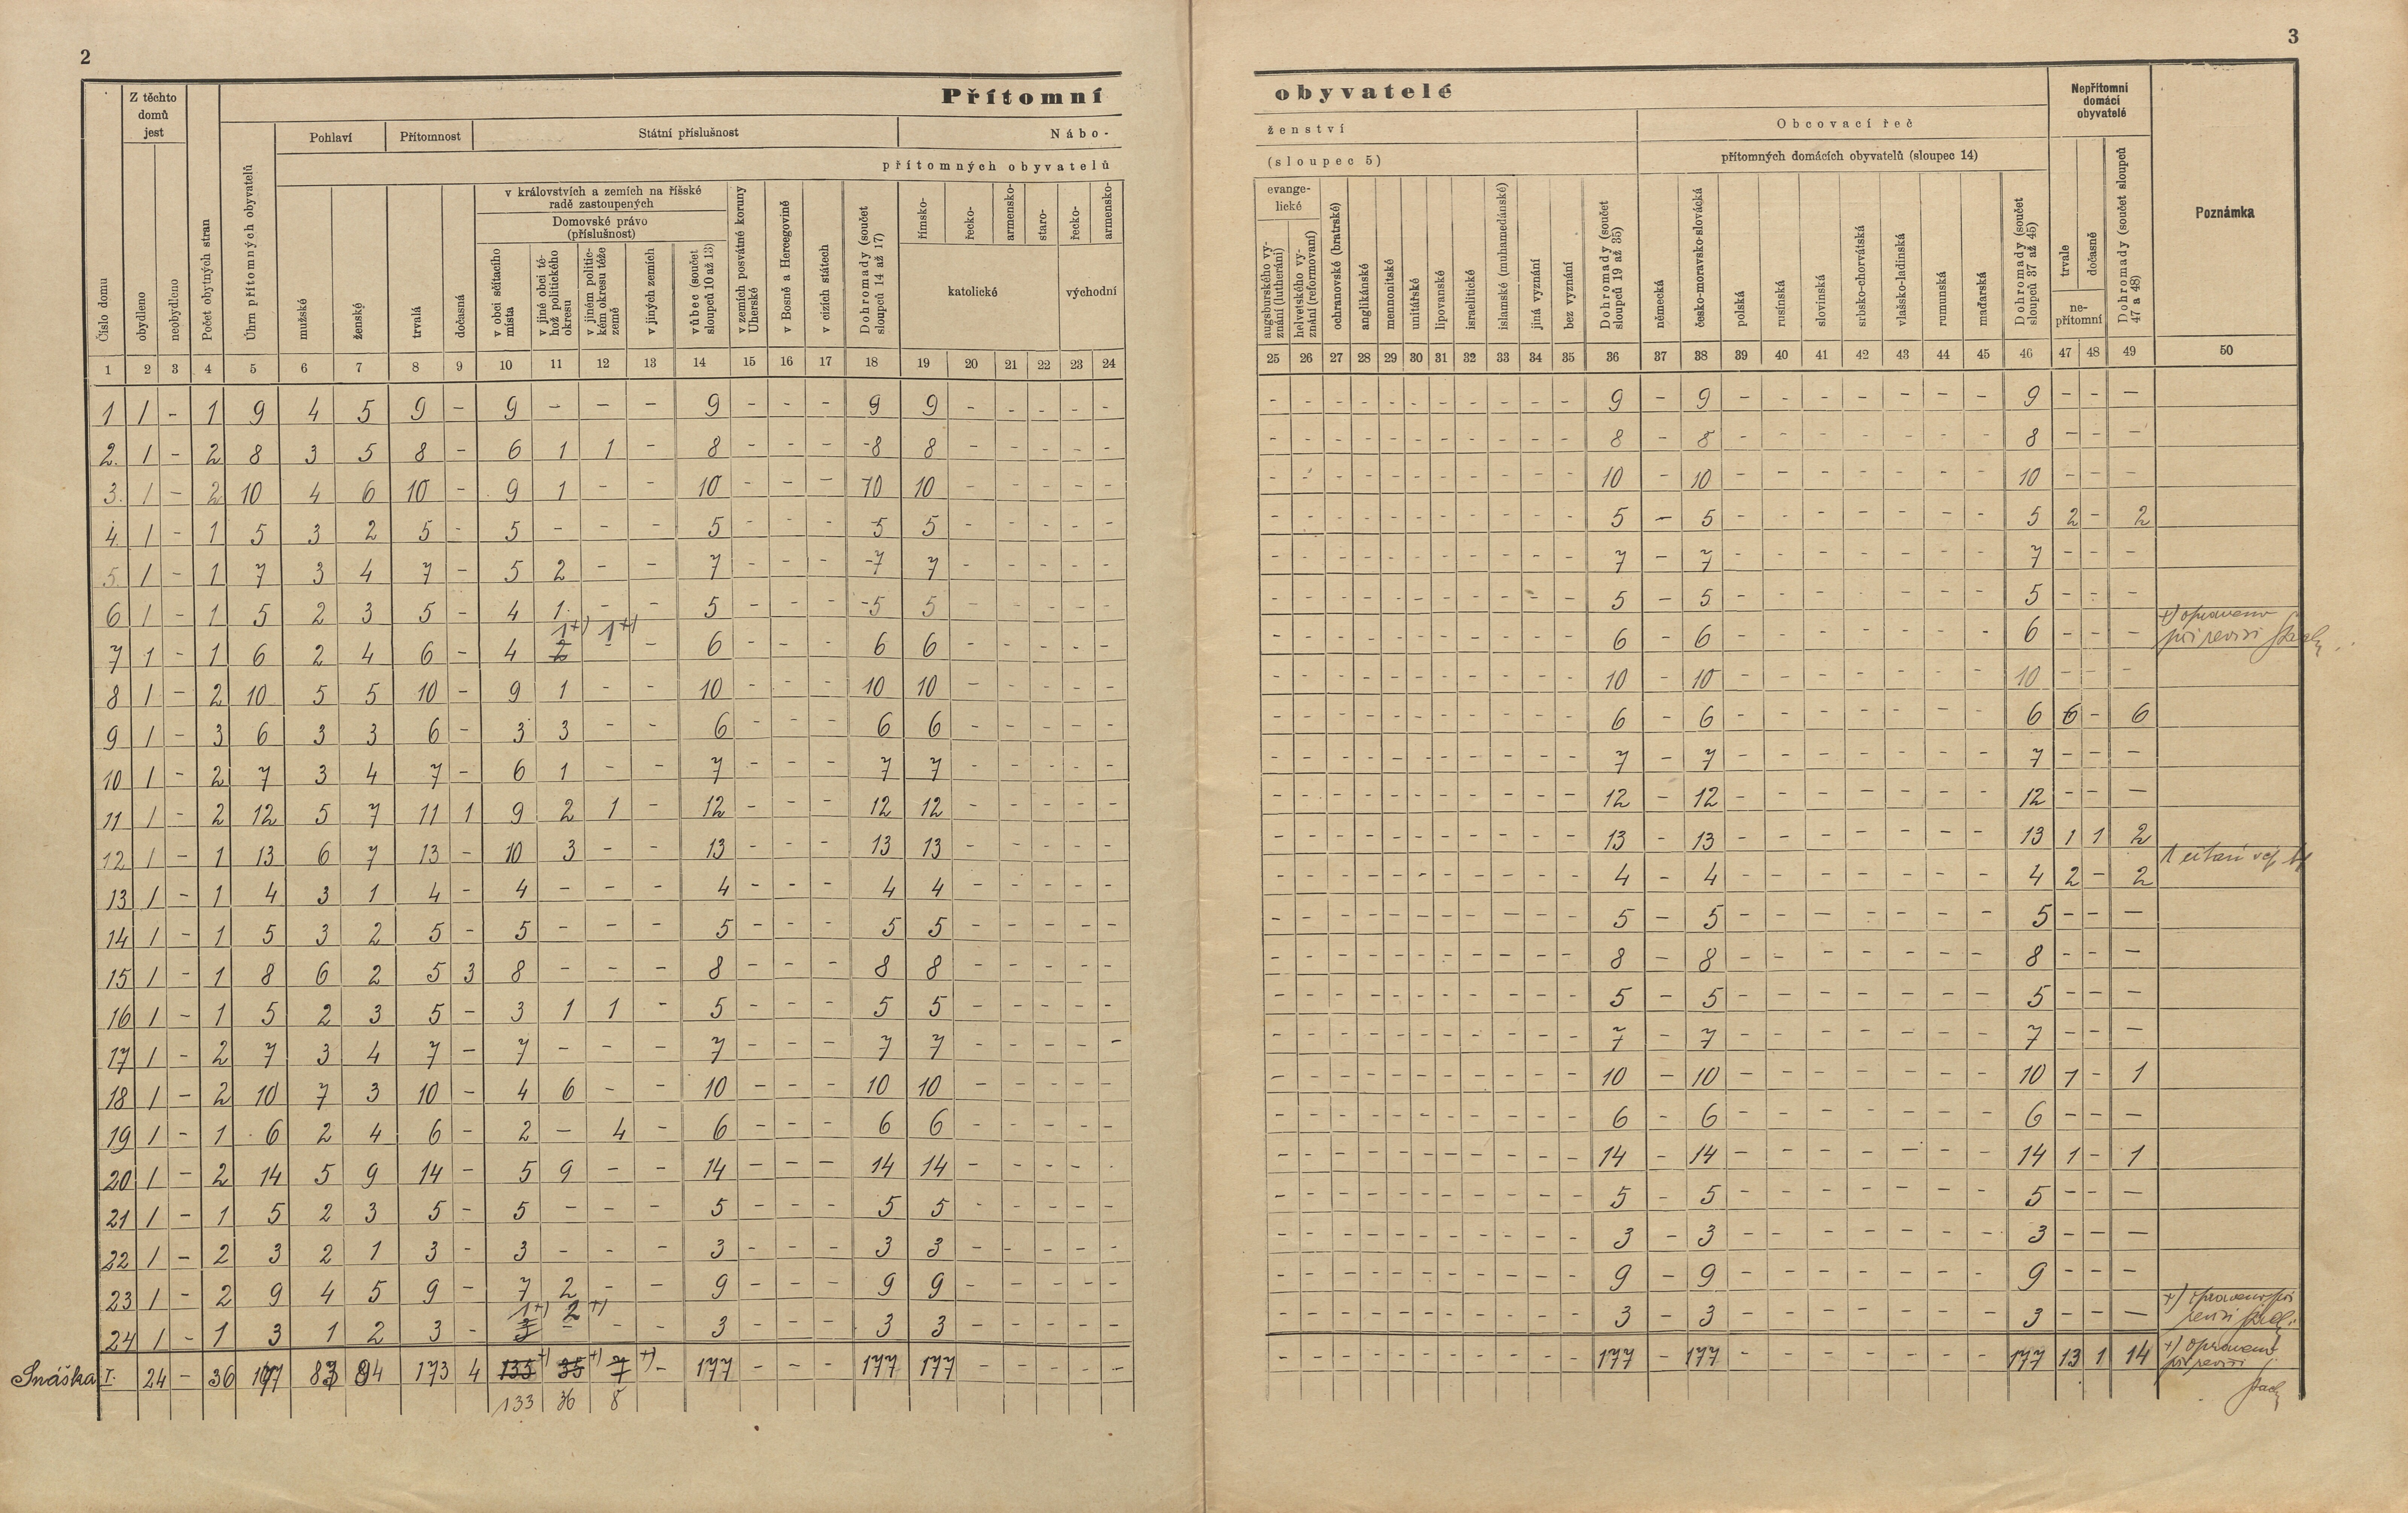 2
3
Přítomní
obyvatelé
Z těchto domů jest
Pohlaví
Přítomnost
Státní příslušnost
Nábo-
ženství
Obcovací řeč
Nepřítomní domácí obyvatelé
přítomných obyvatelů
(sloupec 5)
přítomných domácích obyvatelů (sloupec 14)
v královstvích a zemích na říšské radě zastoupených
Domovské právo (příslušnost)
Číslo domu
obydleno
neobydleno
Počet obytných stran
Úhrn přítomných obyvatelů
mužské
ženské
trvalá
dočasná
v obci sčítacího místa
v jiné obci téhož politického okresu
v jiném politickém okresu téže země
v jiných zemích
vůbec (součet sloupců 10 až 13)
v zemích posvátné koruny Uherské
v Bosně a Hercegovině
v cizích státech
Dohromady (součet sloupců 14 až 17)
římsko-
řecko-
armensko-
staro-
řecko-
armensko-
katolické
východní
evange-
lické
augsburského vyznání (lutheráni)
helvetského vyznání (reformovaní)
ochranovské (bratrské)
anglikánské
mennonitské
unitářské
lipovanské
israelitické
islamské (muhamedánské)
jiná vyznání
bez vyznání
Dohromady (součet sloupců 19 až 35)
německá
česko-moravsko-slovácká
polská
rusínská
slovinská
srbsko-chorvátská
vlašsko-ladinská
rumunská
maďarská
Dohromady (součet sloupců 37 až 45)
trvale
dočasně
ne-
přítomní
Dohromady (součet sloupců 47 a 48)
Poznámka
1 2 3 4 5 6 7 8 9 10 11 12 13 14 15 16 17 18 19 20 21 22 23 24 25 26 27 28 29 30 31 32 33 34 35 36 37 38 39 40 41 42 43 44 45 46 47 48 49 50
1 1 - 1 9 4 5 9 - 9 - - - 9 - - - 9 9 - - - - - - - - - - - - - - - - 9 - 9 - - - - - - - 9 - - -
2. 1 - 2 8 3 5 8 - 6 1 1 - 8 - - - 8 8 - - - - - - - - - - - - - - - - 8 - 8 - - - - - - - 8 - - -
3. 1 - 2 10 4 6 10 - 9 1 - - 10 - - - 10 10 - - - - - - - - - - - - - - - - 10 - 10 - - - - - - - 10 - - -
4. 1 - 1 5 3 2 5 - 5 - - - 5 - - - 5 5 - - - - - - - - - - - - - - - - 5 - 5 - - - - - - - 5 2 - 2
5. 1 - 1 7 3 4 7 - 5 2 - - 7 - - - 7 7 - - - - - - - - - - - - - - - - 7 - 7 - - - - - - - 7 - - -
6 1 - 1 5 2 3 5 - 4 1 - - 5 - - - 5 5 - - - - - - - - - - - - - - - - 5 - 5 - - - - - - - 5 - - -
1+) 1+)
7 1 - 1 6 2 4 6 - 4 2 - - 6 - - - 6 6 - - - - - - - - - - - - - - - - 6 - 6 - - - - - - - 6 - - - +) opraveno
při revisi
8 1 - 2 10 5 5 10 - 9 1 - - 10 - - - 10 10 - - - - - - - - - - - - - - - - 10 - 10 - - - - - - - 10 - - -
9 1 - 3 6 3 3 6 - 3 3 - - 6 - - - 6 6 - - - - - - - - - - - - - - - - 6 - 6 - - - - - - - 6 6 - 6
10 1 - 2 7 3 4 7 - 6 1 - - 7 - - - 7 7 - - - - - - - - - - - - - - - - 7 - 7 - - - - - - - 7 - - -
11 1 - 2 12 5 7 11 1 9 2 1 - 12 - - - 12 12 - - - - - - - - - - - - - - - - 12 - 12 - - - - - - - 12 - - -
12 1 - 1 13 6 7 13 - 10 3 - - 13 - - - 13 13 - - - - - - - - - - - - - - - - 13 - 13 - - - - - - - 13 1 1 2
13 1 - 1 4 3 1 4 - 4 - - - 4 - - - 4 4 - - - - - - - - - - - - - - - - 4 - 4 - - - - - - - 4 2 - 2
14 1 - 1 5 3 2 5 - 5 - - - 5 - - - 5 5 - - - - - - - - - - - - - - - - 5 - 5 - - - - - - - 5 - - -
15 1 - 1 8 6 2 5 3 8 - - - 8 - - - 8 8 - - - - - - - - - - - - - - - - 8 - 8 - - - - - - - 8 - - -
16 1 - 1 5 2 3 5 - 3 1 1 - 5 - - - 5 5 - - - - - - - - - - - - - - - - 5 - 5 - - - - - - - 5 - - -
17 1 - 2 7 3 4 7 - 7 - - - 7 - - - 7 7 - - - - - - - - - - - - - - - - 7 - 7 - - - - - - - 7 - - -
18 1 - 2 10 7 3 10 - 4 6 - - 10 - - - 10 10 - - - - - - - - - - - - - - - - 10 - 10 - - - - - - - 10 1 - 1
19 1 - 1 6 2 4 6 - 2 - 4 - 6 - - - 6 6 - - - - - - - - - - - - - - - - 6 - 6 - - - - - - - 6 - - -
20 1 - 2 14 5 9 14 - 5 9 - - 14 - - - 14 14 - - - - - - - - - - - - - - - - 14 - 14 - - - - - - - 14 1 - 1
21 1 - 1 5 2 3 5 - 5 - - - 5 - - - 5 5 - - - - - - - - - - - - - - - - 5 - 5 - - - - - - - 5 - - -
22 1 - 2 3 2 1 3 - 3 - - - 3 - - - 3 3 - - - - - - - - - - - - - - - - 3 - 3 - - - - - - - 3 - - -
23 1 - 2 9 4 5 9 - 7 2 - - 9 - - - 9 9 - - - - - - - - - - - - - - - - 9 - 9 - - - - - - - 9 - - -
1+) 2+)
24 1 - 1 3 1 2 3 - 3 - - - 3 - - - 3 3 - - - - - - - - - - - - - - - - 3 - 3 - - - - - - - 3 - - - +) opraveno při
revisi
Snáška I. 24 - 36 177 83 94 173 4 135+) 35+) 7+) - 177 - - - 177 177 - - - - - - - - - - - - - - - - 177 - 177 - - - - - - - 177 13 1 14 +) opraveno
při revisi
133 36 8